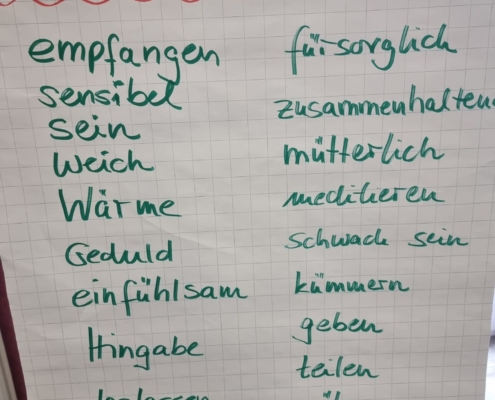 empfangen
sensibel
sein
weich
Wärme
Geduld
einfühlsam
Hingabe
fürsorglich
zusammenhaltend
mütterlich
meditieren
schwach sein
kümmern
geben
teilen